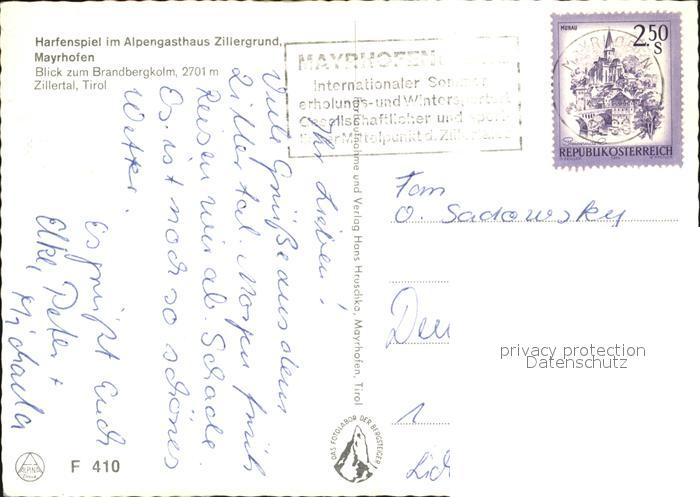 Harfenspiel im Alpengasthaus Zillergrund,
Mayrhofen
Blick zum Brandbergkolm, 2701 m
Zillertal, Tirol
MAYRHOFEN
Internationaler Sommer
erholungs- und Wintersportort
Gesellschaftlicher und sport
Mittelpunkt d. Zillertales
MURAU
2.50
S
REPUBLIK ÖSTERREICH
Ihr Lieben!
Viele Grüße aus dem
Zillertal. Morgen früh
reisen wir ab. Schade.
Es ist noch so schönes
Wetter.
Es grüßt Euch
Elke, Peter +
Michaela
Fam
O. Sadowsky
1
privacy protection
Datenschutz
Aufnahme und Verlag Hans Hruschka, Mayrhofen, Tirol
DAS FOTOLABOR DER BERGSTEIGER
ALPINA
F 410